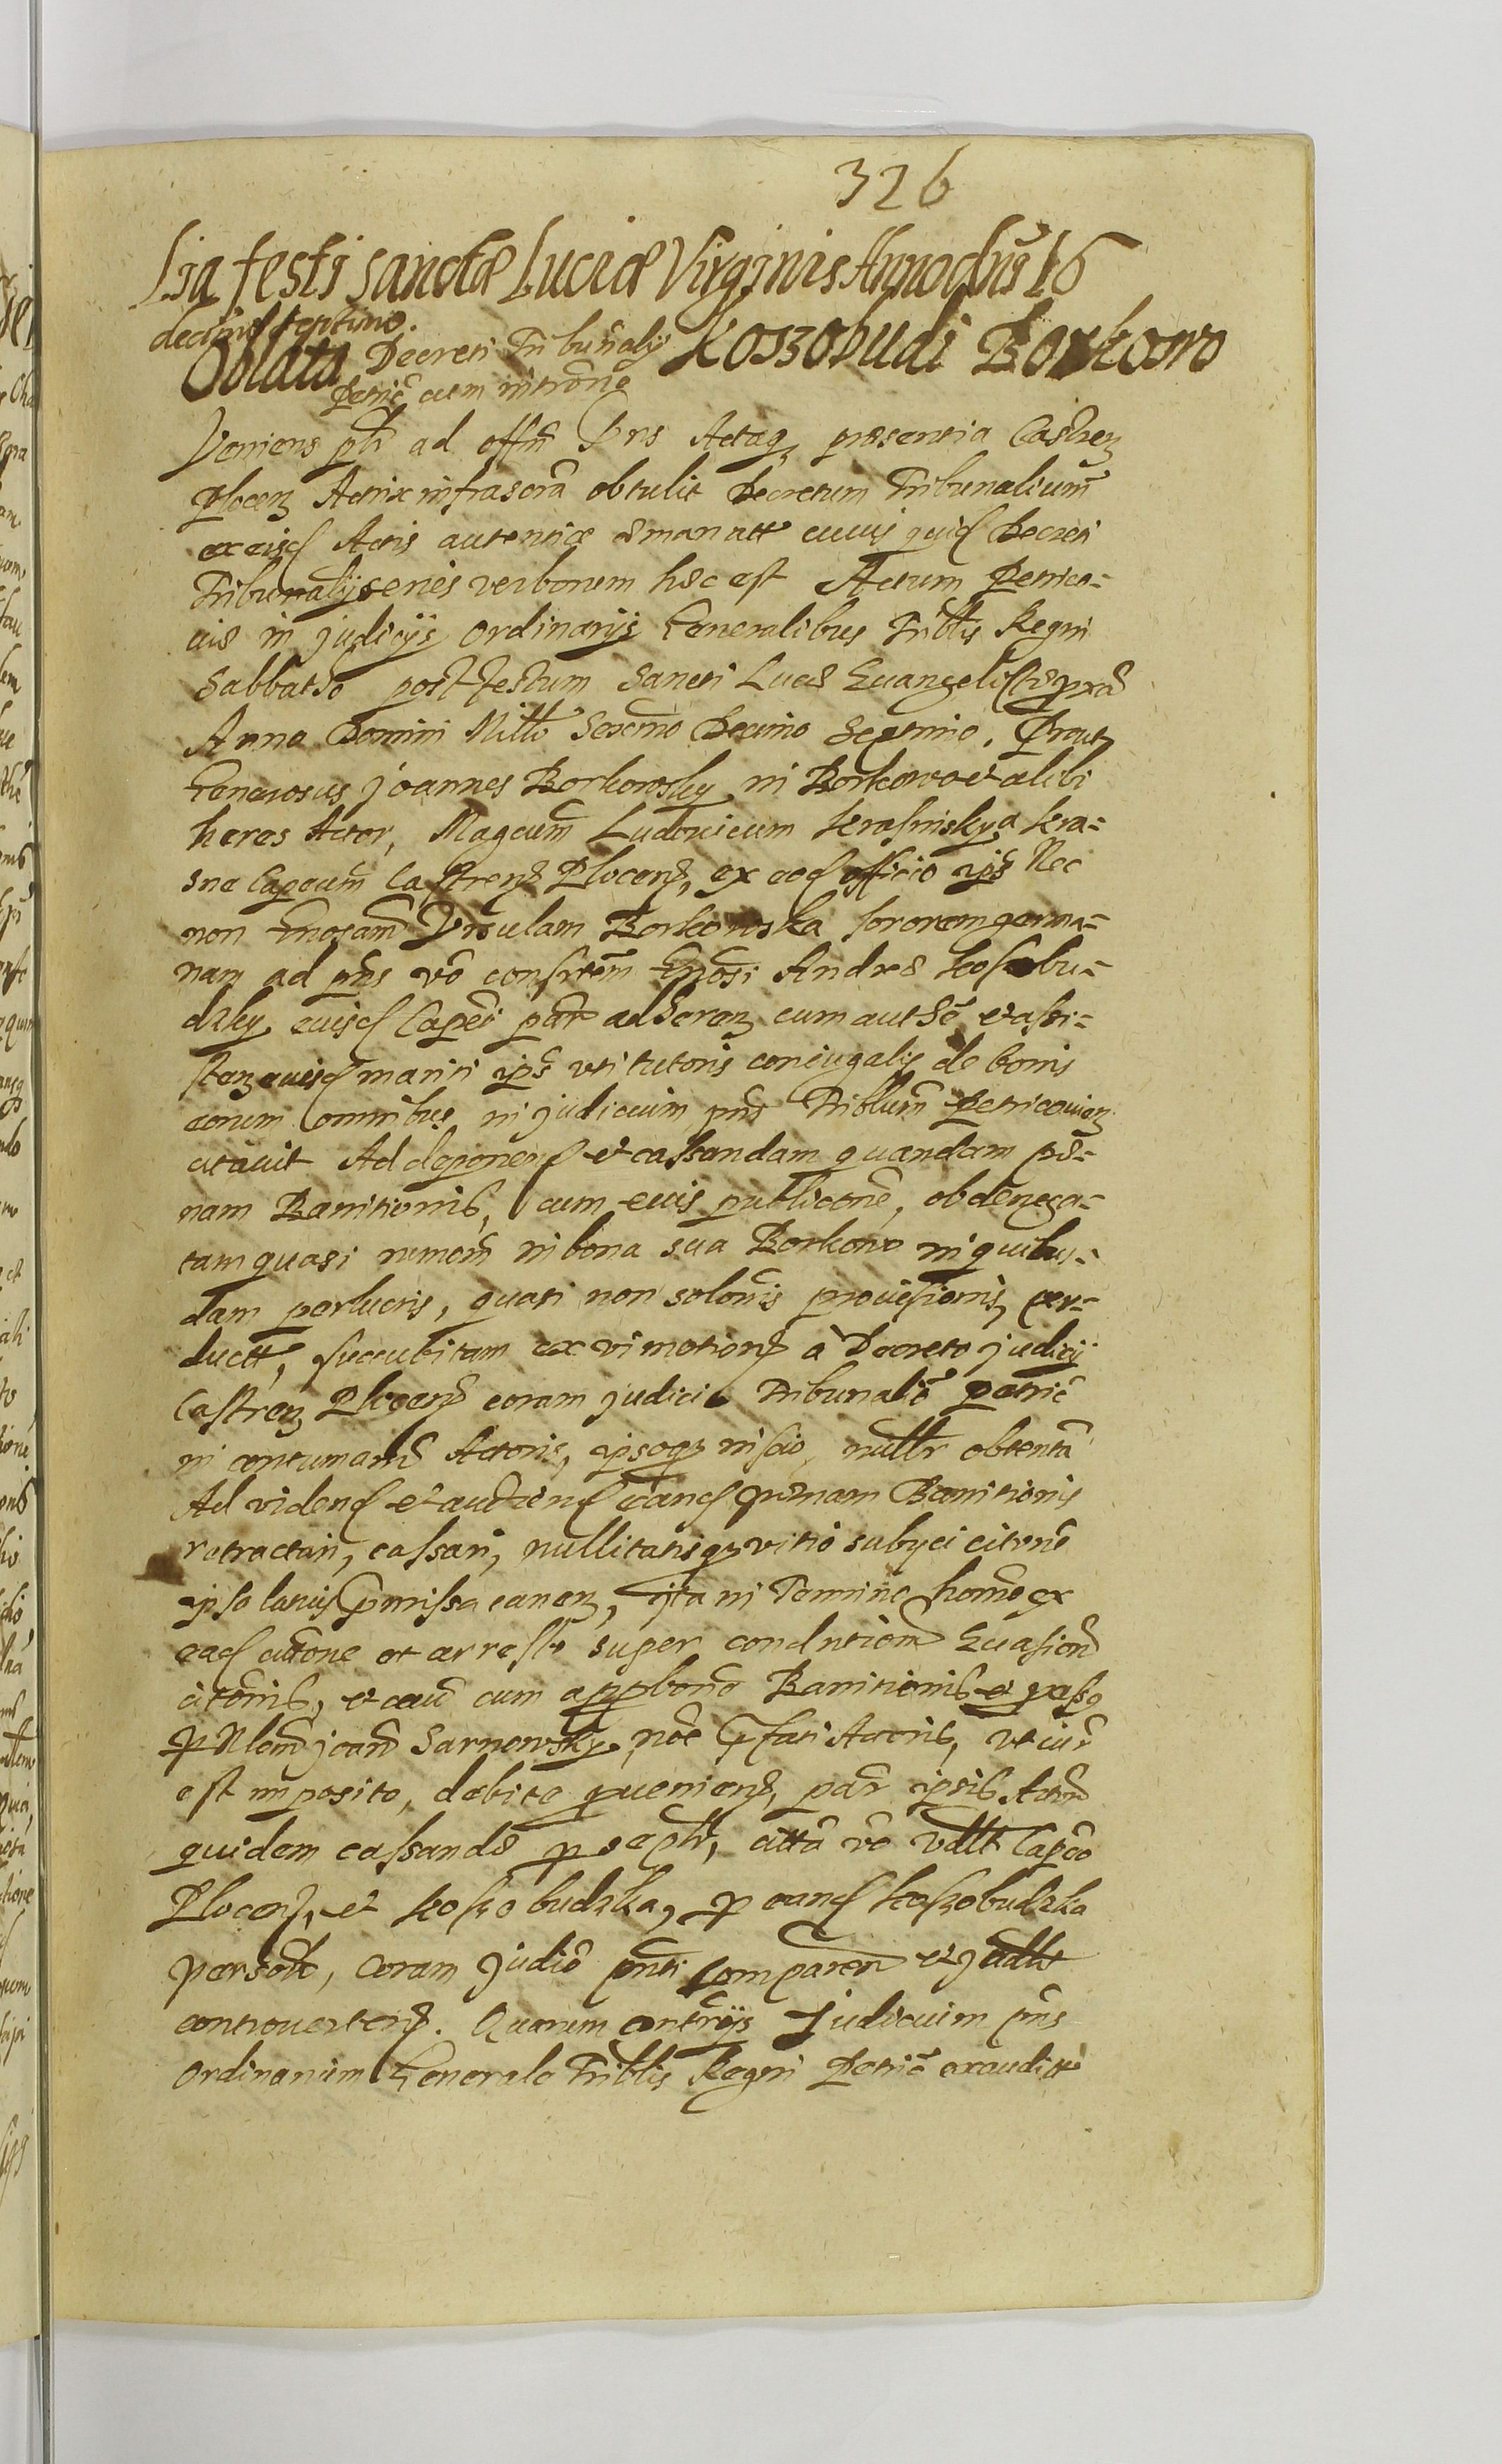 326
Lia festi sanctæ Luciæ Virginis Anno dni 16
decimo septimo.
Oblata Decreti Tribunalis Kossobudi Borkowo
Petric cum intrōne
Veniens plr ad offm Prs Actaq præsentia Castren
Plocen Actrix infrascra obtulit Decretum Tribunalium
ex eisd Actis autentice emanatt cuius quid Decreti
Tribunalis series verborum hæc est Actum Petrico-
uiæ in judicijs ordinarijs Generalibus Tribllis Regni
Sabbatho post festum Sancti Lucæ Euangelistæ prox
Anno Domini Millo Sexcmo Decimo Septimo. Prout
Generosus Joannes Borkowsky in Borkowo et alibi
heres Actor, Magcum Ludouicum Krasinsky a Kra-
sne Capeum Castrens Plocens, ex eod officio ips Nec
non Gnosam Vrsulam Borkowska sororem germa-
nam ad pns vo consrtem Gnosi Andreæ Kossobu-
dzky, euisd Capei par adheren cum authe et assi-
sten euisd mariti ips vti tutoris coniugalis de bonis
eorum omnibus in judicium pns Triblium Petricouien
citauit Ad deponend et cassandam quandam pæ-
nam Banitionis, cum euis publicone, ob denega-
tam quasi remom in bona sua Borkowo in quibus-
dam perlucris, quasi non solonis prouisionis, per-
ductt, succubitam ex vi motions a Decreto judicij
Castren Plocens coram judicio Tribunali Petric
in contumatia Actoris, ipsoq inscio, nullr obtenta
Ad vidend et audiend eand pænam Banitionis
retractari, cassari, nullitatisq vitio subijci citone
ipsa latius pmissa canen, Ita in Termino homo ex
ead citone et arresto super conditione Euasione
citonis, et eau cum approbone Banitionis et passo
p Nlem joan Sarnowsky noe pfati Actoris, vt iur
est imposito, debite prueniens, par ipsis Actor
quidem cassande p se plr, citta vo vtllt Capeo
Plocens, et Kossobudzka, p eand Kossobudzka
personr, coram judio pnti comparen et jadllt
controuertens. Quarum contrijs Judicium pns
ordinarium Generale Tribllis Regni Petric exauditt